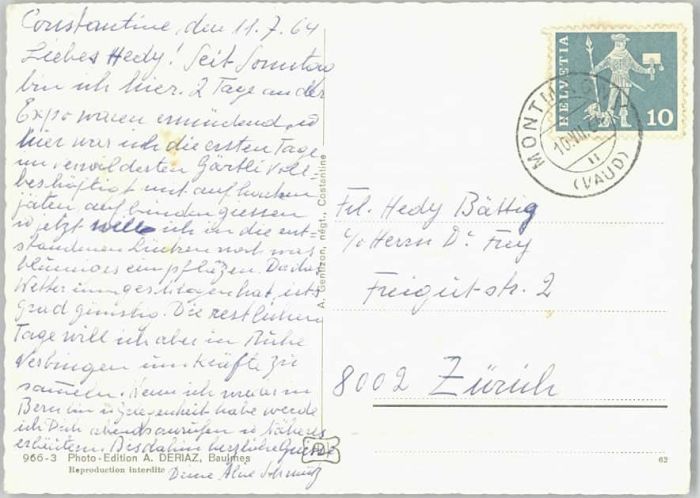 Constantine, den 11.7.64
Liebes Hedy! Seit Sonntag
bin ich hier. 2 Tage an der
Expo waren ermüdend, u
hier war ich die ersten Tage
im verwilderten Gärtli voll-
beschäftigt mit aufhacken
jäten aufbinden giessen
u jetzt will ich in die ent-
standenen Lücken noch was
blumiges einpflanzen. Da das
Wetter umgeschlagen hat, ists
grad günstig. Die restlichen
Tage will ich aber in Ruhe
verbringen um Kräfte zu
sammeln. Wenn ich wieder in
Bern bin u Gelegenheit habe werde
ich Dich abends anrufen u Näheres
erläutern. Bis dahin herzliche Grüsse
Deine Alice
966-3 Photo-Edition A. DERIAZ, Baulmes
Reproduction interdite
A. Gentizon, négt., Costantine
HELVETIA
10
(VAUD)
Frl. Hedy Bättig
c/o Herrn Dr. Frey
Freigut-str. 2
8002 Zürich
62